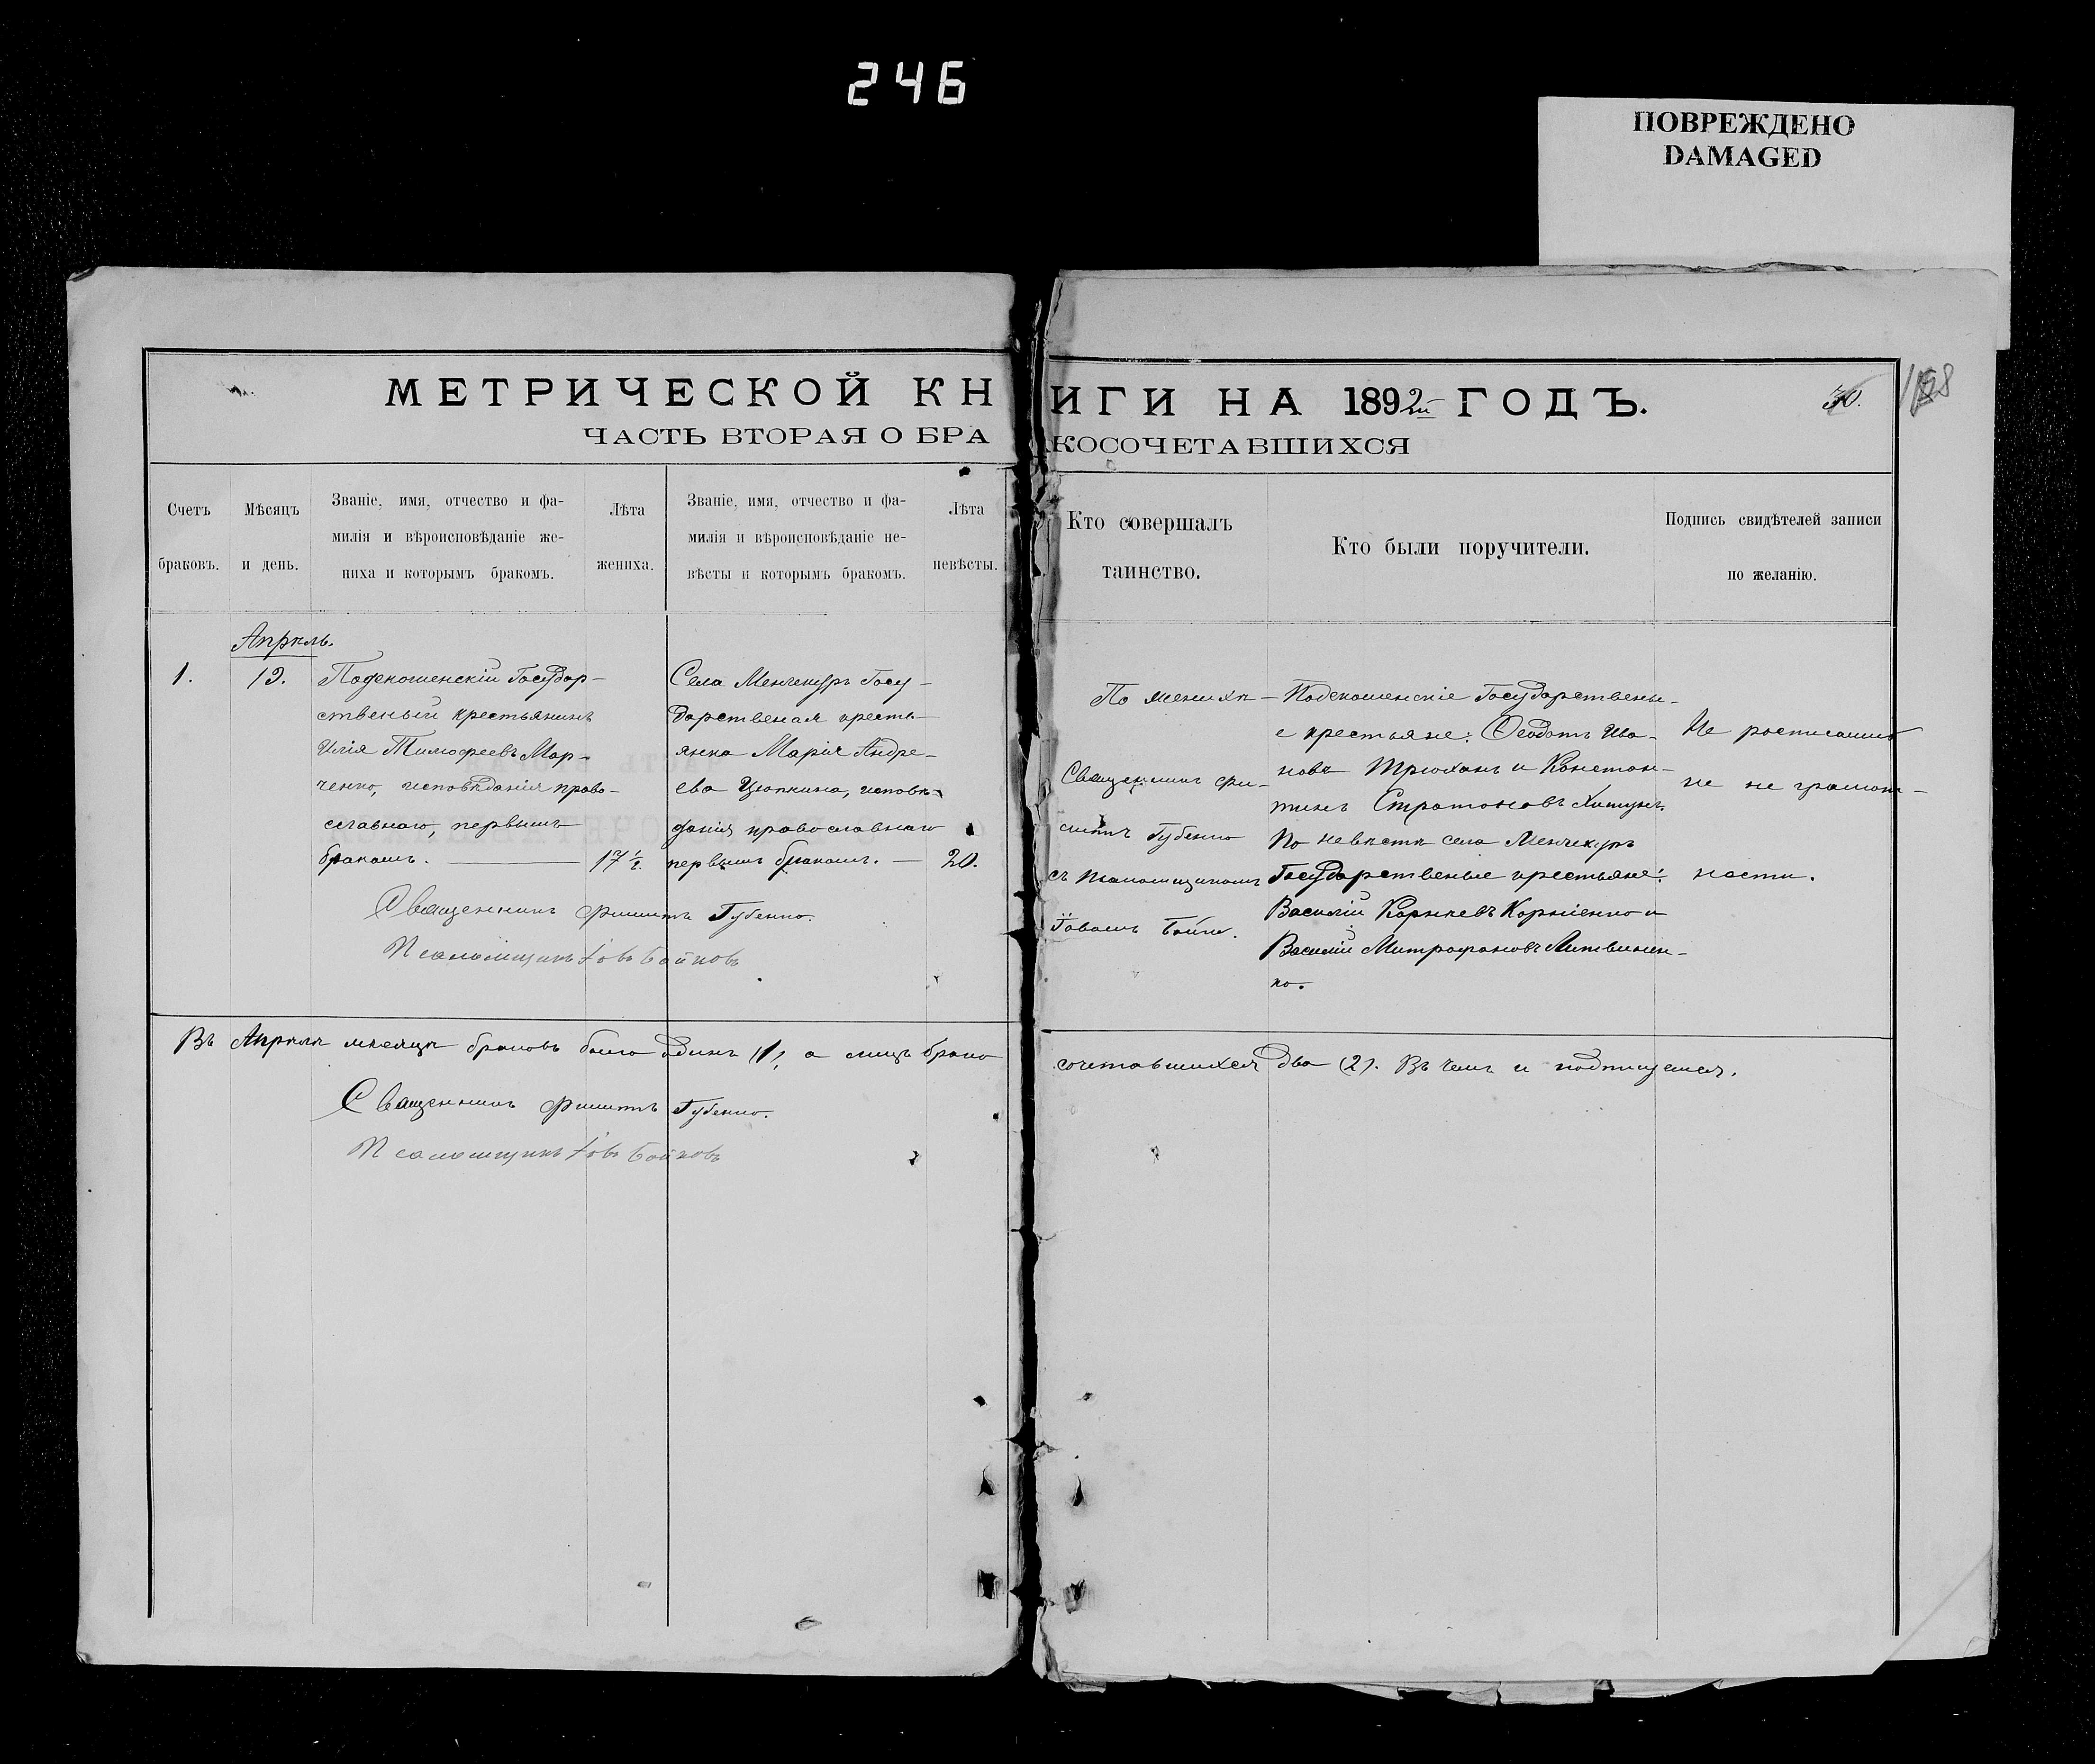 246
ПОВРЕЖДЕНО
DAMAGED
МЕТРИЧЕСКОЙ КНИГИ НА 1892й ГОДЪ.
30.
ЧАСТЬ ВТОРАЯ О БРАКОСОЧЕТАВШИХСЯ
Счетъ
браковъ.
Мѣсяцъ
и день.
Званіе, имя, отчество и фа-
милія и вѣроисповѣданіе же-
ниха и которымъ бракомъ.
Лѣта
жениха.
Званіе, имя, отчество и фа-
милія и вѣроисповѣданіе не-
вѣсты и которымъ бракомъ.
Лѣта
невѣсты.
Кто совершалъ
таинство.
Кто были поручители.
Подпись свидѣтелей записи
по желанію.
Апрѣль.
1.
19.
Государ-
ственый крестьянинъ
Илія Тимофеевъ Мар-
ченко, исповѣданія право-
славнаго, первымъ
бракомъ.
17½.
Села Менчекуръ Госу-
дарственая кресть-
янка Марія Андре-
ева Цюпкина, исповѣ-
данія православнаго
первымъ бракомъ. —
20.
Священникъ Филиппъ Губенко.
Псаломщикъ Іовъ Бойковъ
Священникъ Фи-
липпъ Губенко
съ псаломщикомъ
Іовомъ
По женихѣ — Государствены-
е крестьяне: Ѳеодотъ Ива-
новъ Трюханъ и Констан-
тинъ Стратоновъ
По невѣстѣ села Менчекуръ
Государственые крестьяне:
Василій Корнѣевъ Корніенко и
Василій Митрофановъ Литвинен-
ко.
Не росписаны
не грамот-
ности.
Въ Апрѣлѣ мѣсяцѣ браковъ было одинъ (1), а лицъ брако
сочетавшихся два (2). Въ чемъ и подпишемся.
Священникъ Филиппъ Губенко.
Псаломщикъ Іовъ Бойковъ